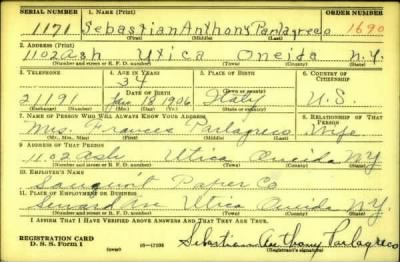 SERIAL NUMBER 1. NAME (Print) ORDER NUMBER
1171 Sebastian Anthony Parlagreco 1690
(First) (Middle) (Last)
2. ADDRESS (Print)
1102 Ash Utica Oneida N.Y.
(Number and street or R. F. D. number) (Town) (County) (State)
3. TELEPHONE 4. AGE IN YEARS 5. PLACE OF BIRTH 6. COUNTRY OF CITIZENSHIP
34
DATE OF BIRTH (Town or county)
21191 Jan 18 1906 Italy U.S.
(Exchange) (No.) (Mo.) (Day) (Yr.) (State or country)
7. NAME OF PERSON WHO WILL ALWAYS KNOW YOUR ADDRESS 8. RELATIONSHIP OF THAT PERSON
Mrs. Frances Parlagreco Wife
(Mr., Mrs., Miss) (First) (Middle) (Last)
9. ADDRESS OF THAT PERSON
1102 Ash Utica Oneida NY
(Number and street or R. F. D. number) (Town) (County) (State)
10. EMPLOYER'S NAME
Sauquoit Paper Co
11. PLACE OF EMPLOYMENT OR BUSINESS
Utica Oneida NY
(Number and street or R. F. D. number) (Town) (County) (State)
I AFFIRM THAT I HAVE VERIFIED ABOVE ANSWERS AND THAT THEY ARE TRUE.
REGISTRATION CARD
D. S. S. Form 1 (over) 16—17105 Sebastian Anthony Parlagreco
(Registrant's signature)